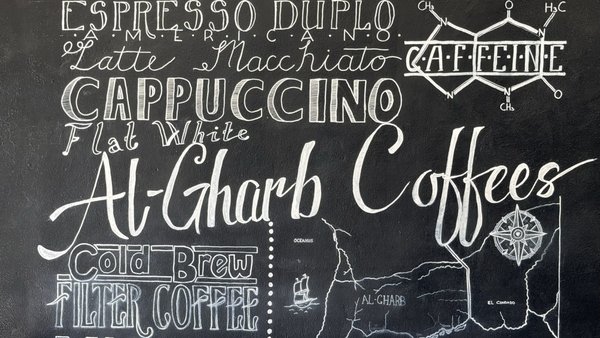 ESPRESSO DUPLO
A·M·E·R·I·C·A·N·O
Latte Macchiato
CAPPUCCINO
Flat White
CH₃
O
H₃C
C·A·F·F·E·I·N·E
N
N
O
CH₃
Al-Gharb Coffees
Cold Brew
FILTER COFFEE
OCEANUS
AL-GHARB